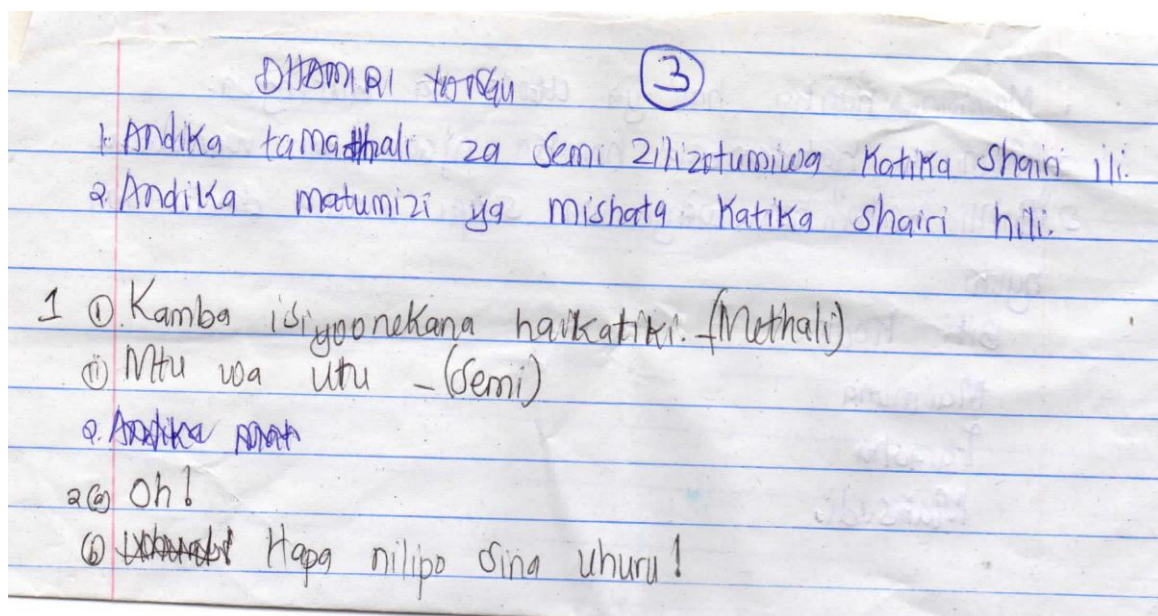 DHAMIRI YANGU 3
1. Andika tamathali za semi zilizotumiwa katika shairi ili.
2. Andika matumizi ya mishata katika shairi hili.
1 (i) Kamba isiyoonekana haikatiki. - (Methali)
(ii) Mtu wa utu - (Semi)
2. Andika mat
2(a) Oh!
(b) Hapa nilipo sina uhuru!